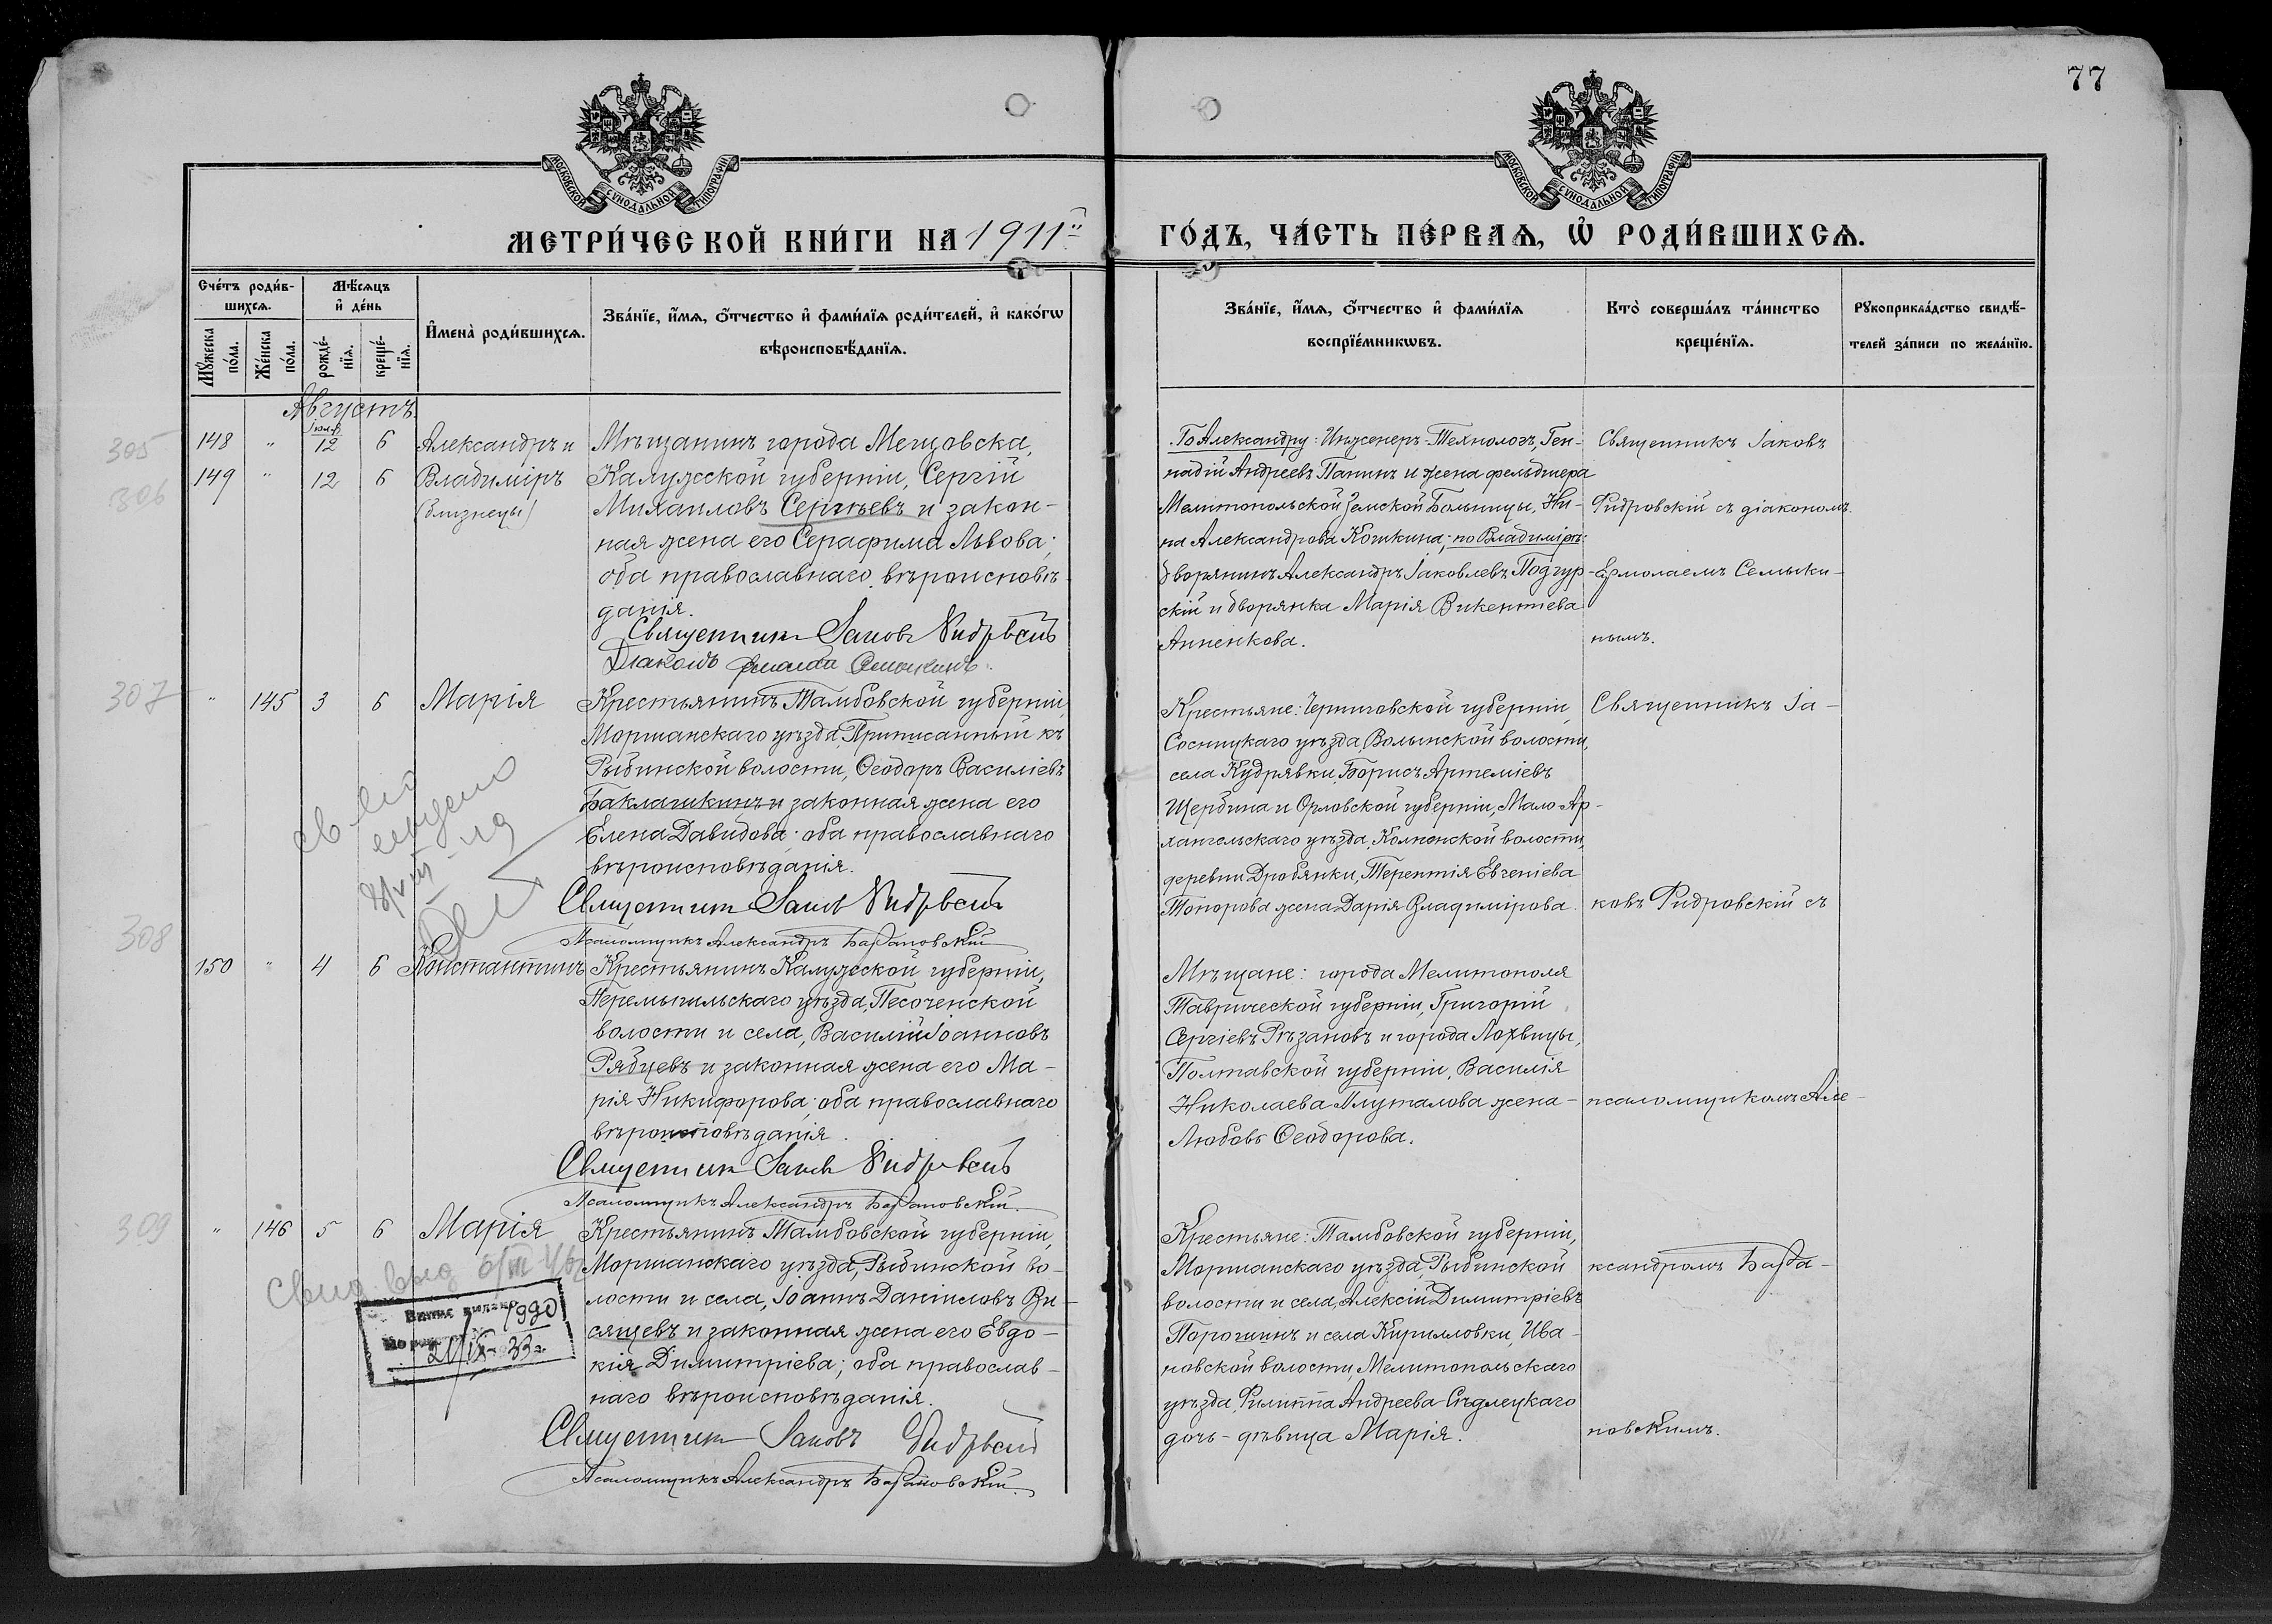 77
МОСКОВСКОЙ СУНОДАЛЬНОЙ ТИПОГРАФІИ
МОСКОВСКОЙ СУНОДАЛЬНОЙ ТИПОГРАФІИ
МЕТРИ́ЧЕСКОЙ КНИ́ГИ НА 1911й
ГО́ДЪ, ЧА́СТЬ ПЕ́РВАѦ, Ѽ РОДИ́ВШИХСѦ.
Сче́тъ роди́в-
шихсѧ.
Мꙋ́жеска по́ла.
Же́нска по́ла.
Мѣ́сѧцъ
и҆ де́нь
рожде́-нїѧ.
креще́-нїѧ.
И҆мена̀ роди́вшихсѧ.
Зва́нїе, и҆́мѧ, ѻ҆́тчество и҆ фами́лїѧ роди́телей, и҆ како́гѡ
вѣроисповѣ́данїѧ.
Зва́нїе, и҆́мѧ, ѻ҆́тчество и҆ фами́лїѧ
воспрїе́мникѡвъ.
Кто̀ соверша́лъ та́инство
креще́нїѧ.
Рꙋкоприкла́дство свидѣ́-
телей за́писи по жела́нїю.
Августъ.
305
148 " Іюля 12 6 Александръ и
306
149 " 12 6 Владиміръ
(близнецы)
Мѣщанинъ города Мещовска,
Калужской губерніи, Сергій
Михаиловъ Сергѣевъ и закон-
ная жена его Серафима Львова;
оба православнаго вѣроисповѣ-
данія.
Священникъ Іаковъ Фидровскій
Діаконъ Ермолай Семыкинъ.
По Александру: Инженеръ-Технологъ, Ген-
надій Андреевъ Панинъ и жена фельдшера
Мелитопольской Земской Больницы, Ни-
на Александрова Кошкина; по Владиміру:
дворянинъ Александръ Іаковлевъ Подгур-
скій и дворянка Марія Викентіева
Анненкова.
Священникъ Іаковъ
Фидровскій съ діакономъ
Ермолаемъ Семыки-
нымъ.
307
" 145 3 6 Марія
Крестьянинъ Тамбовской губерніи,
Моршанскаго уѣзда, Приписанный къ
Рыбинской волости, Ѳеодоръ Василіевъ
Баклашкинъ и законная жена его
Елена Давидова; оба православнаго
вѣроисповѣданія.
Священникъ Іаковъ Фидровскій
Псаломщикъ Александръ Барановскій
Крестьяне: Черниговской губерніи,
Сосницкаго уѣзда, Волынской волости,
села Кудрявки, Борисъ Артеміевъ
Щербина и Орловской губерніи, Мало-Ар-
хангельскаго уѣзда, Колпенской волости,
деревни Дробянки, Терентія Евгеніева
Топорова жена Дарія Владимірова.
Священникъ Іа-
ковъ Фидровскій съ
308
150 " 4 6 Константинъ
Крестьянинъ Калужской губерніи,
Перемышльскаго уѣзда, Песоченской
волости и села, Василій Іоанновъ
Рябцевъ и законная жена его Ма-
рія Никифорова; оба православнаго
вѣроисповѣданія.
Священникъ Іаковъ Фидровскій
Псаломщикъ Александръ Барановскій.
Мѣщане: города Мелитополя
Таврической губерніи, Григорій
Сергіевъ Рѣзановъ и города Лохвицы,
Полтавской губерніи, Василія
Николаева Плуталова жена
Любовь Ѳеодорова.
псаломщикомъ Але-
309
" 146 5 6 Марія
Крестьянинъ Тамбовской губерніи,
Моршанскаго уѣзда, Рыбинской во-
лости и села, Іоаннъ Даніиловъ Ви-
сящевъ и законная жена его Евдо-
кія Димитріева; оба православ-
наго вѣроисповѣданія.
Священникъ Іаковъ Фидровскій
Псаломщикъ Александръ Барановскій.
Крестьяне: Тамбовской губерніи,
Моршанскаго уѣзда, Рыбинской
волости и села, Алексій Димитріевъ
Порошинъ и села Кирилловки, Ива-
новской волости, Мелитопольскаго
уѣзда, Филиппа Андреева Сѣдлецкаго
дочь-дѣвица Марія.
ксандромъ Бара-
новскимъ.